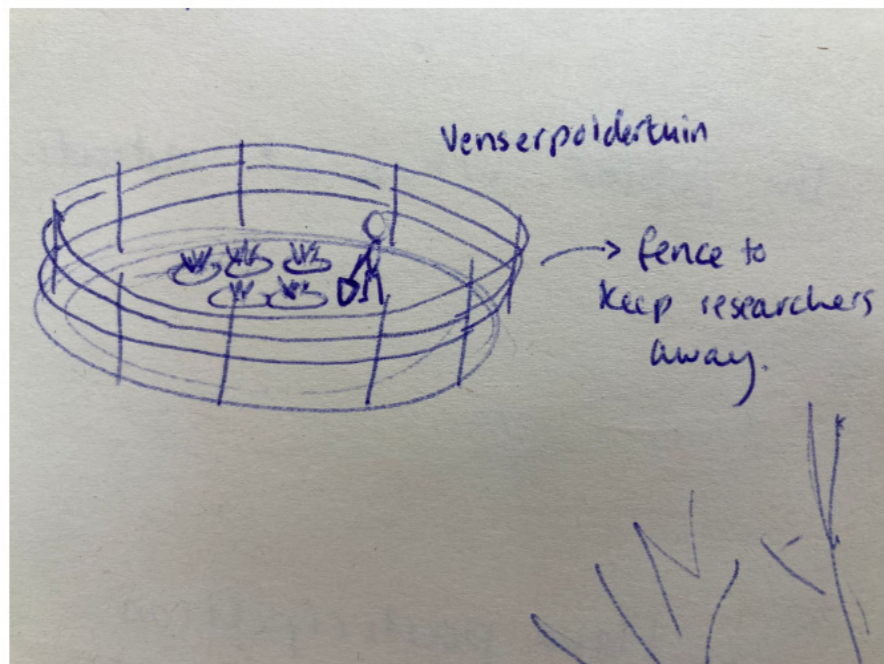 Venserpoldertuin
fence to
keep researchers
away.